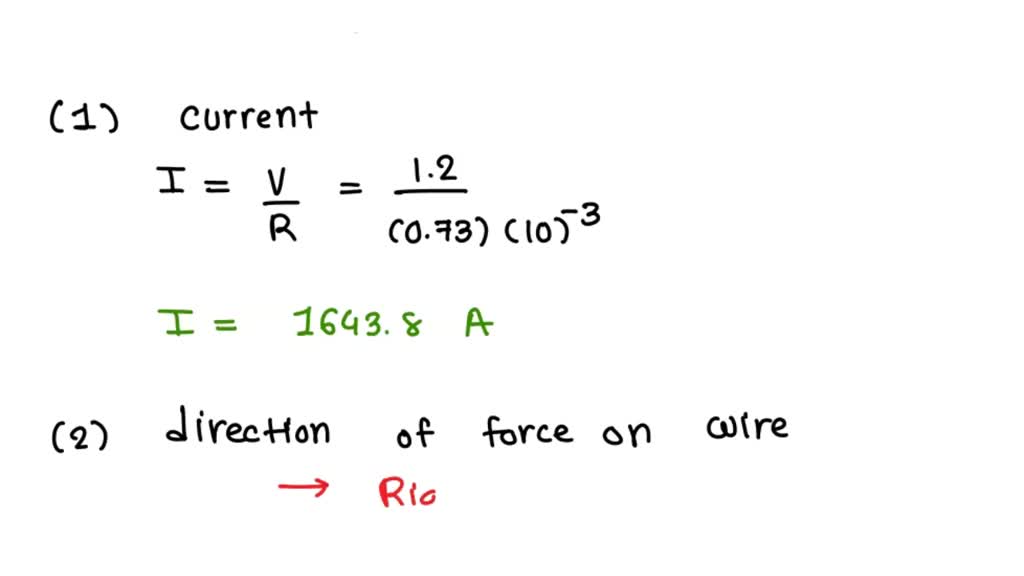 (1) current
I = V/R = 1.2/(0.73)(10)⁻³
I = 1643.8 A
(2) direction of force on wire
→ Rig